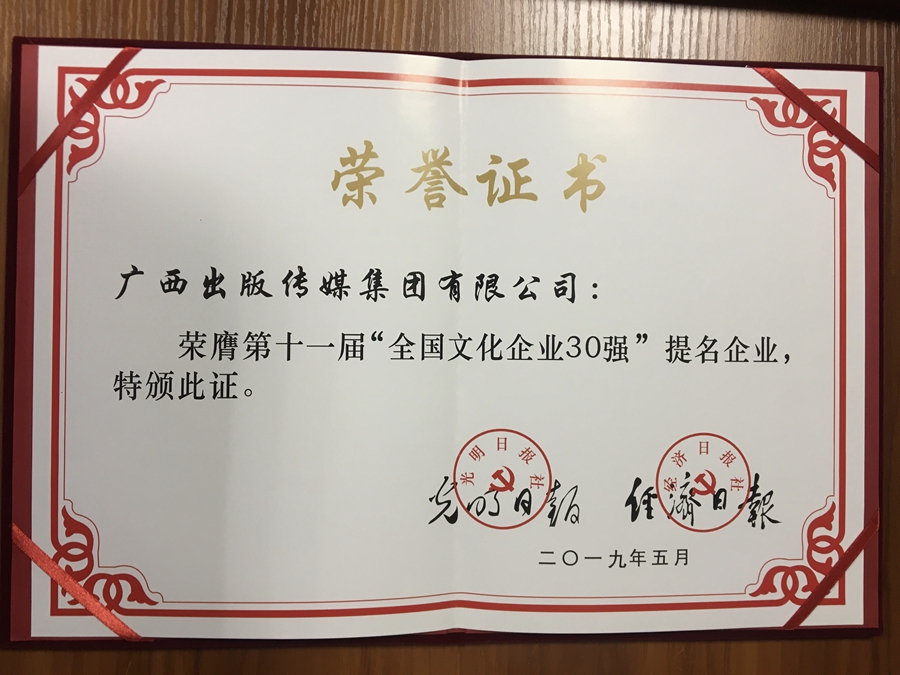 荣誉证书
广西出版传媒集团有限公司：
荣膺第十一届“全国文化企业30强”提名企业，
特颁此证。
光明日报社
经济日报社
光明日報
經濟日報
二〇一九年五月